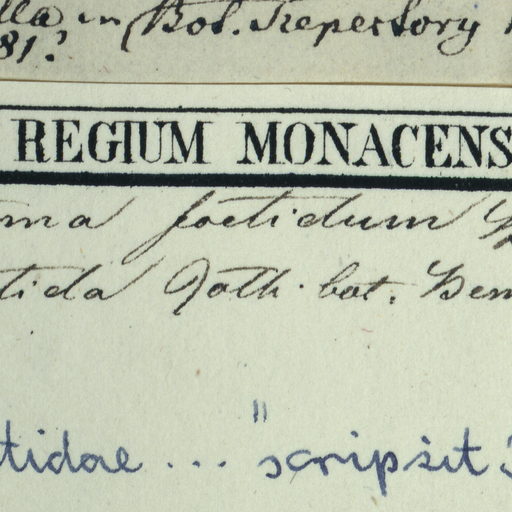 lla in Bot. Repertory
81?
REGIUM MONACENS
ma foetidum
tida Roth. bot.
tidae ... "scripsit